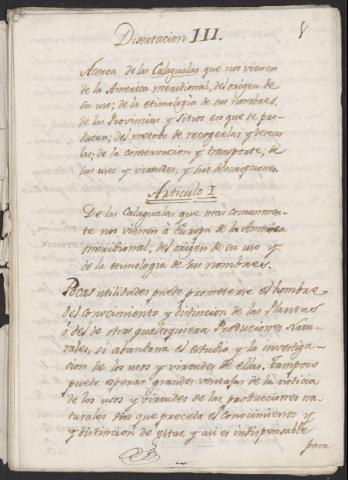 Disertacion III.
Acerca de las Calagualas que nos vienen
de la America meridional, del origen de
su uso; de la etimologia de sus nombres,
de las Provincias y Sitios en que se pro-
ducen; del metodo de recogerlas y desecar
las; de la conservacion y transporte; de
sus usos y virtudes, y sus descripciones.
Articulo I
De las Calagualas que mas comunmen-
te nos vienen à Europa de la America
meridional, del origen de su uso y
de la etimologia de sus nombres.
Pocas utilidades puede prometerse el hombre
del conocimiento y distincion de las Plantas
ó del de otras qualesquiera Producciones Natu-
rales, si abandona el estudio y la investiga-
cion de los usos y virtudes de ellas. Tampoco
puede esperar grandes ventajas de la noticia
de los usos y virtudes de las producciones na-
turales sin que preceda el conocimiento y
y distincion de estas, y asi es indispensable
para